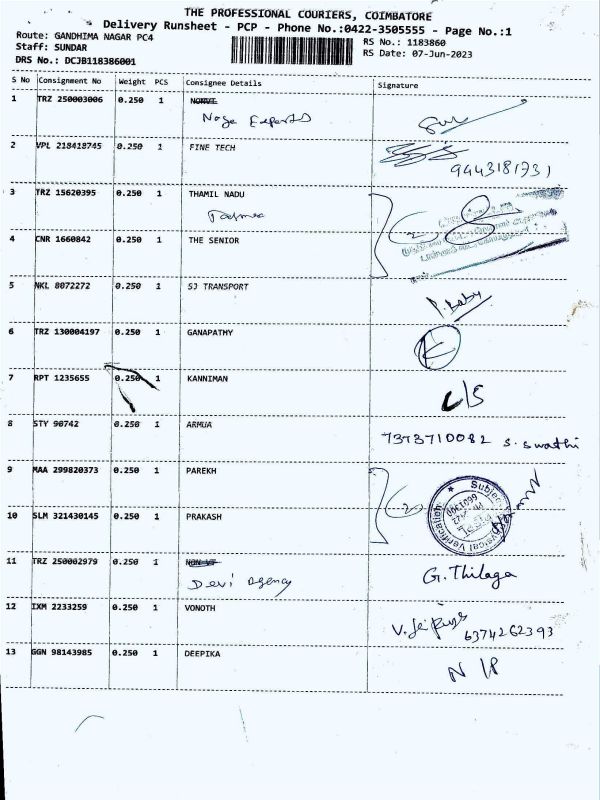 THE PROFESSIONAL COURIERS, COIMBATORE
Delivery Runsheet - PCP - Phone No.:0422-3505555 - Page No.:1
Route: GANDHIMA NAGAR PC4
Staff: SUNDAR
DRS No.: DCJB118386001
RS No.: 1183860
RS Date: 07-Jun-2023
S No Consignment No Weight PCS Consignee Details Signature
1 TRZ 250003006 0.250 1
2 VPL 218418745 0.250 1 FINE TECH
9443181731
3 TRZ 15620395 0.250 1 THAMIL NADU
4 CNR 1660842 0.250 1 THE SENIOR
5 NKL 8072272 0.250 1 SJ TRANSPORT
P. Baby
6 TRZ 130004197 0.250 1 GANAPATHY
7 RPT 1235655 0.250 1 KANNIMAN
C/S
8 STY 90742 0.250 1 ARMUA
7373710082 S. Swathi
9 MAA 299820373 0.250 1 PAREKH
2
Subject Physical Verification
10 SLM 321430145 0.250 1 PRAKASH
11 TRZ 250002979 0.250 1
Devi agency
G. Thilaga
12 IXM 2233259 0.250 1 VONOTH
6374262393
13 GGN 98143985 0.250 1 DEEPIKA